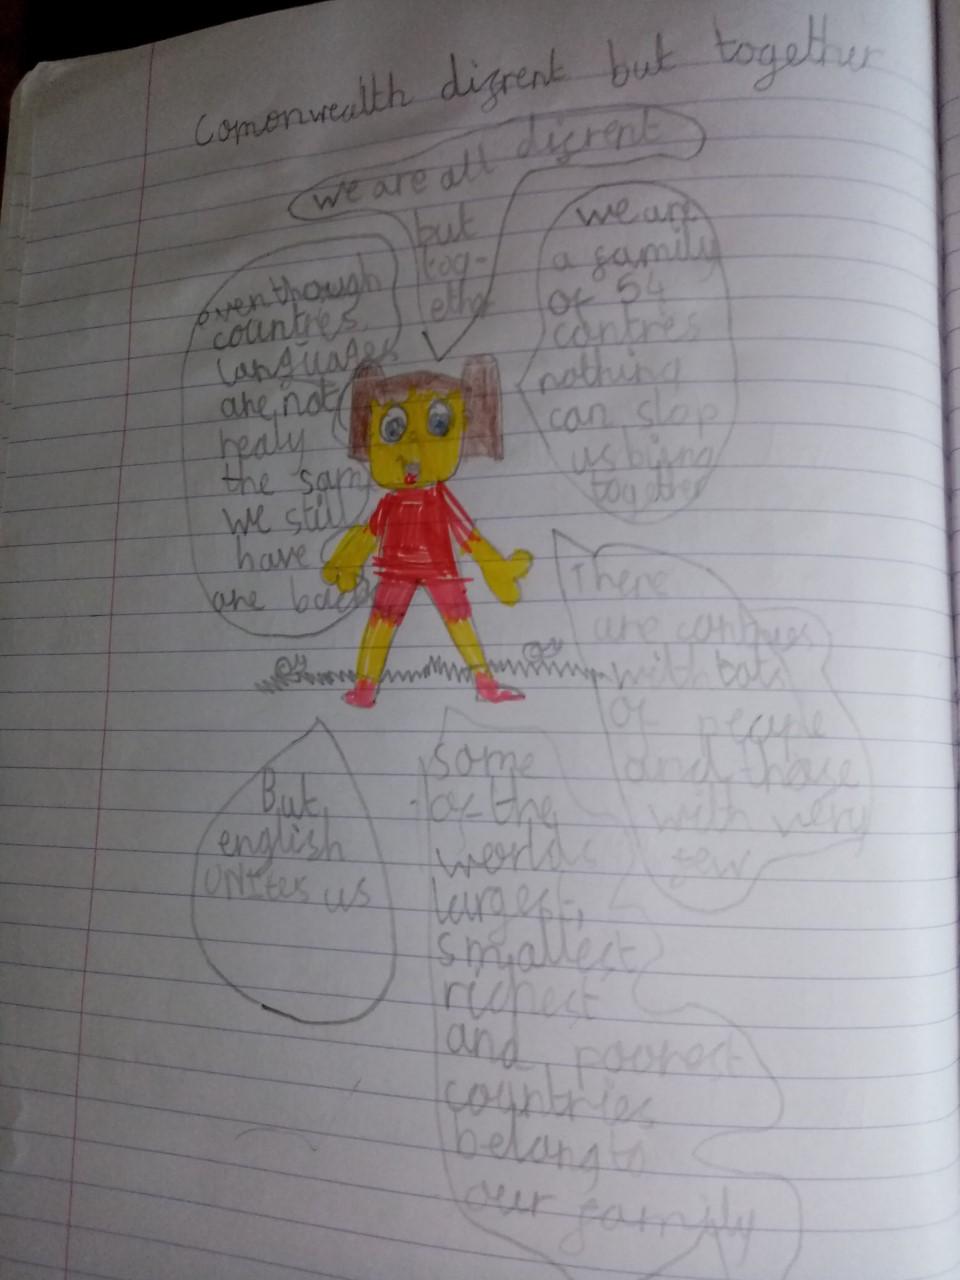 Comonwealth difrent but together
we are all difrent
but
tog-
ether
even though
countres
languages
are not
realy
the same
we still
have
are backs
we are
a family
of 54
contries
nothing
can stop
us biing
together
There
are contries
with lots
of people
and those
with very
few
But
english
UNites us
some
of the
worlds
largest,
smallest
richest
and poorest
countries
belong to
our family